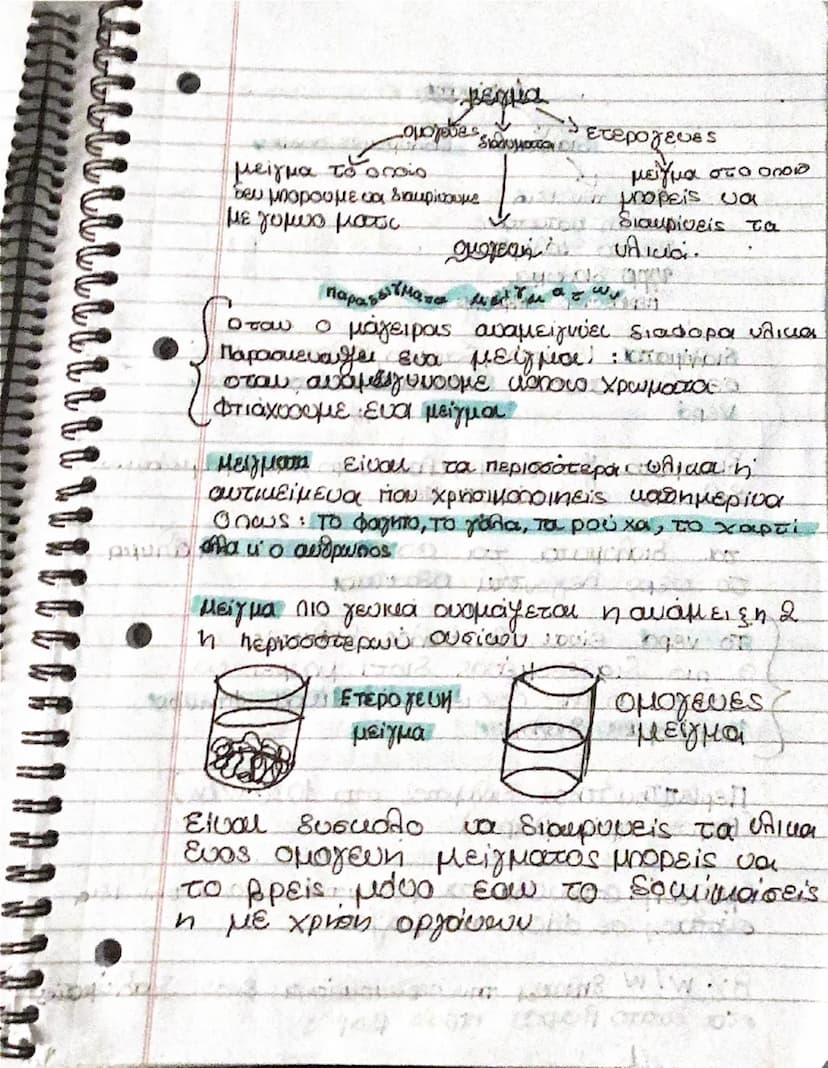 μείγμα
ομογενές διαλύματα ετερογενες
μείγμα το οποίο
δεν μπορουμε να διακρίνουμε
με γυμνο ματι
μείγμα στο οποιο
μπορείς να
διακρίνεις τα
υλικά.
ομογενή
Παραδείγματα μειγματων
Οταν ο μάγειρας αναμειγνύει διαφορα υλικα
Παρασκευαζει ενα μείγμα!
οταν αναμειγνυουμε καποιο χρωματα
Φτιάχνουμε ενα μείγμα
Μείγματα είναι τα περισσότερα υλικα ή
αντικείμενα που χρησιμοποιηείς καθημερινα
Όπως: το φαγητο, το γάλα, τα ρούχα, το χαρτί
αλα κ' ο ανθρωπος
Μείγμα πιο γενικά ονομάζεται η ανάμειξη 2
ή περισσότερων ουσιών
Ετερογενη
μείγμα
ομογενες
μειγμα
Είναι δυσκολο να διακρυνεις τα υλικα
ενος ομογενή μείγματος μπορείς να
το βρείς μόνο εαν το δοκιμάσεις
ή με χρήση οργάνων